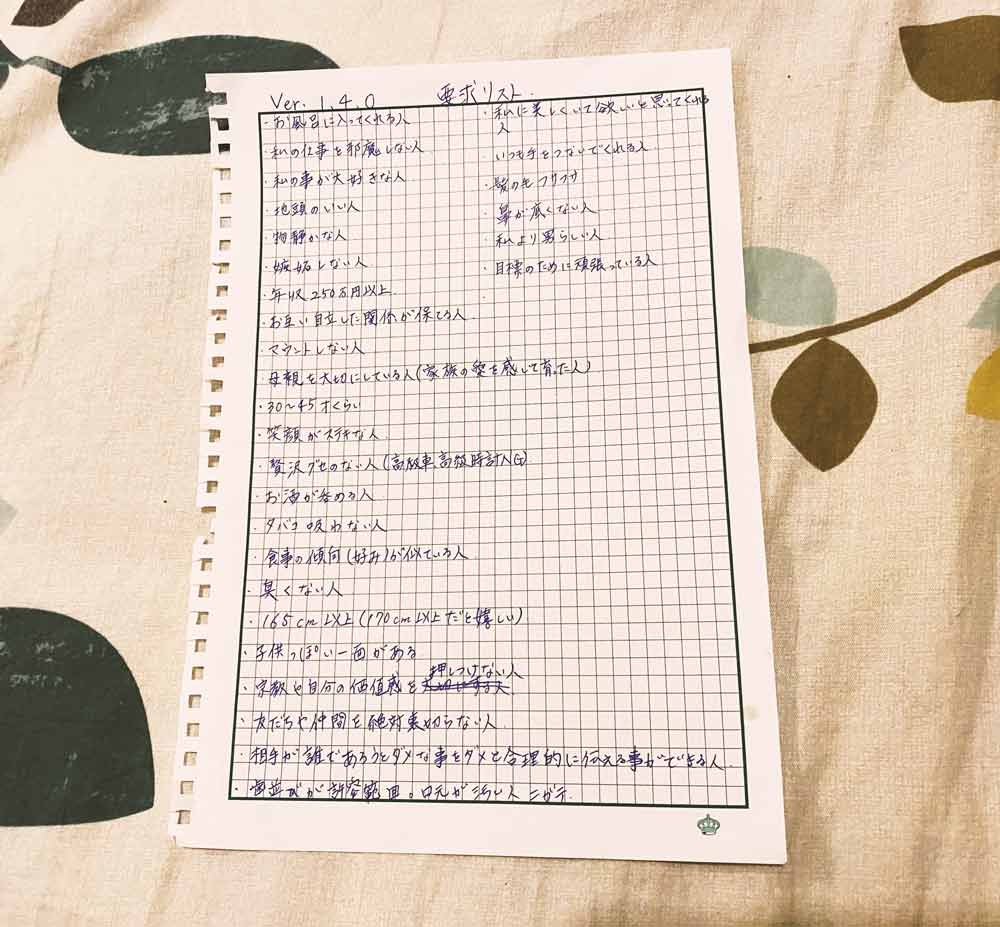 Ver. 1.4.0
要求リスト.
・お風呂に入ってくれる人
・私の仕事を邪魔しない人
・私の事が大好きな人
・地頭のいい人
・物静かな人
・嫉妬しない人
・年収250万円以上
・お互い自立した関係が保てる人
・マウントしない人
・母親を大切にしている人(家族の愛を感じて育った人)
・30〜45才くらい
・笑顔がステキな人
・贅沢グセのない人(高級車高級時計入G)
・お酒が呑める人
・タバコ吸わない人
・食事の傾向(好み)が似ている人
・臭くない人
・165cm以上(170cm以上だと嬉しい)
・子供っぽい一面がある
・宗教や自分の価値感を押しつけない人
・友だちや仲間を絶対裏切らない人
・相手が誰であろうとダメな事をダメと合理的に伝える事ができる人
・歯並びが許容範囲。口元が汚い人ニガテ
・私に美しくいて欲しいと思ってくれる
人
・いつも手をつないでくれる人
・髪の毛フサフサ
・鼻が底くない人
・私より男らしい人
・目標のために頑張っている人